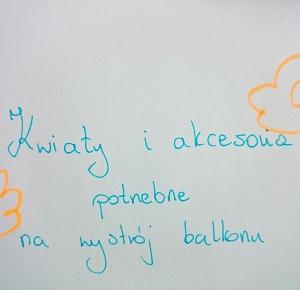 Kwiaty i akcesoria
potrzebne
na wystrój balkonu